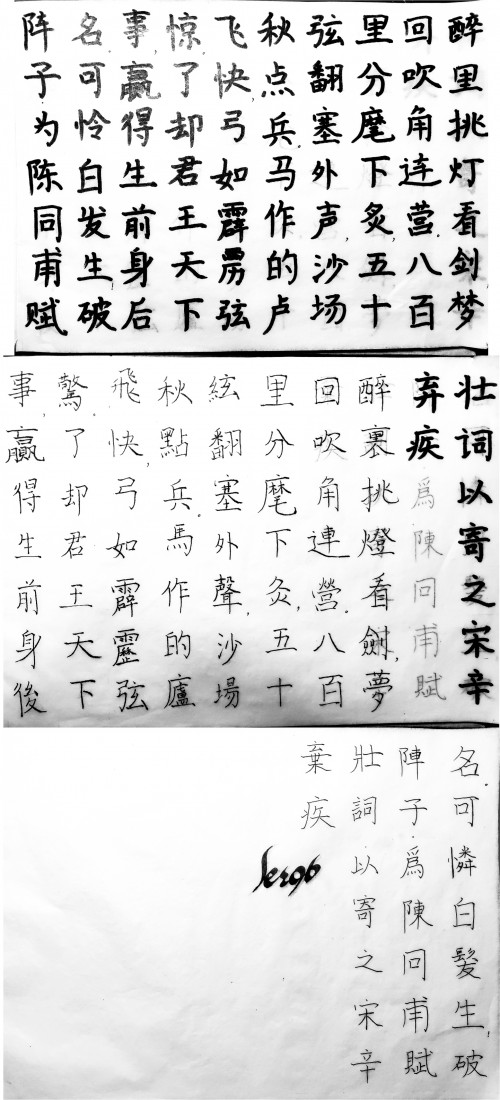 醉里挑灯看剑,梦
回吹角连营.八百
里分麾下炙,五十
弦翻塞外声,沙场
秋点兵.马作的卢
飞快,弓如霹雳弦
惊.了却君王天下
事,赢得生前身后
名.可怜白发生,破
阵子.为陈同甫赋
壮词以寄之宋辛
弃疾
醉裏挑燈看劍,夢
回吹角連營.八百
里分麾下炙,五十
絃翻塞外聲,沙場
秋點兵.馬作的廬
飛快,弓如霹靂弦
驚.了却君王天下
事,贏得生前身後
名.可憐白髮生,破
陣子.爲陳同甫賦
壯詞以寄之宋辛
棄疾